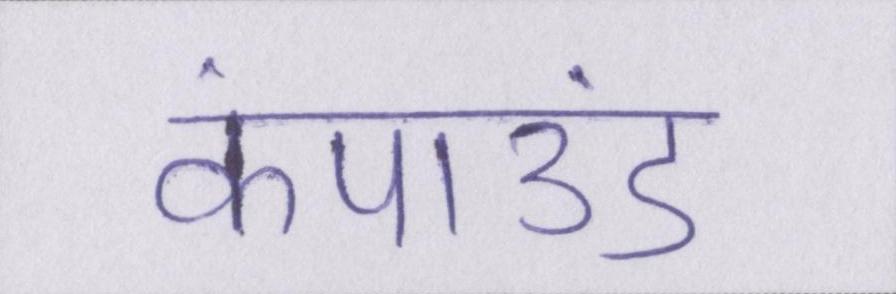 कंपाउंड